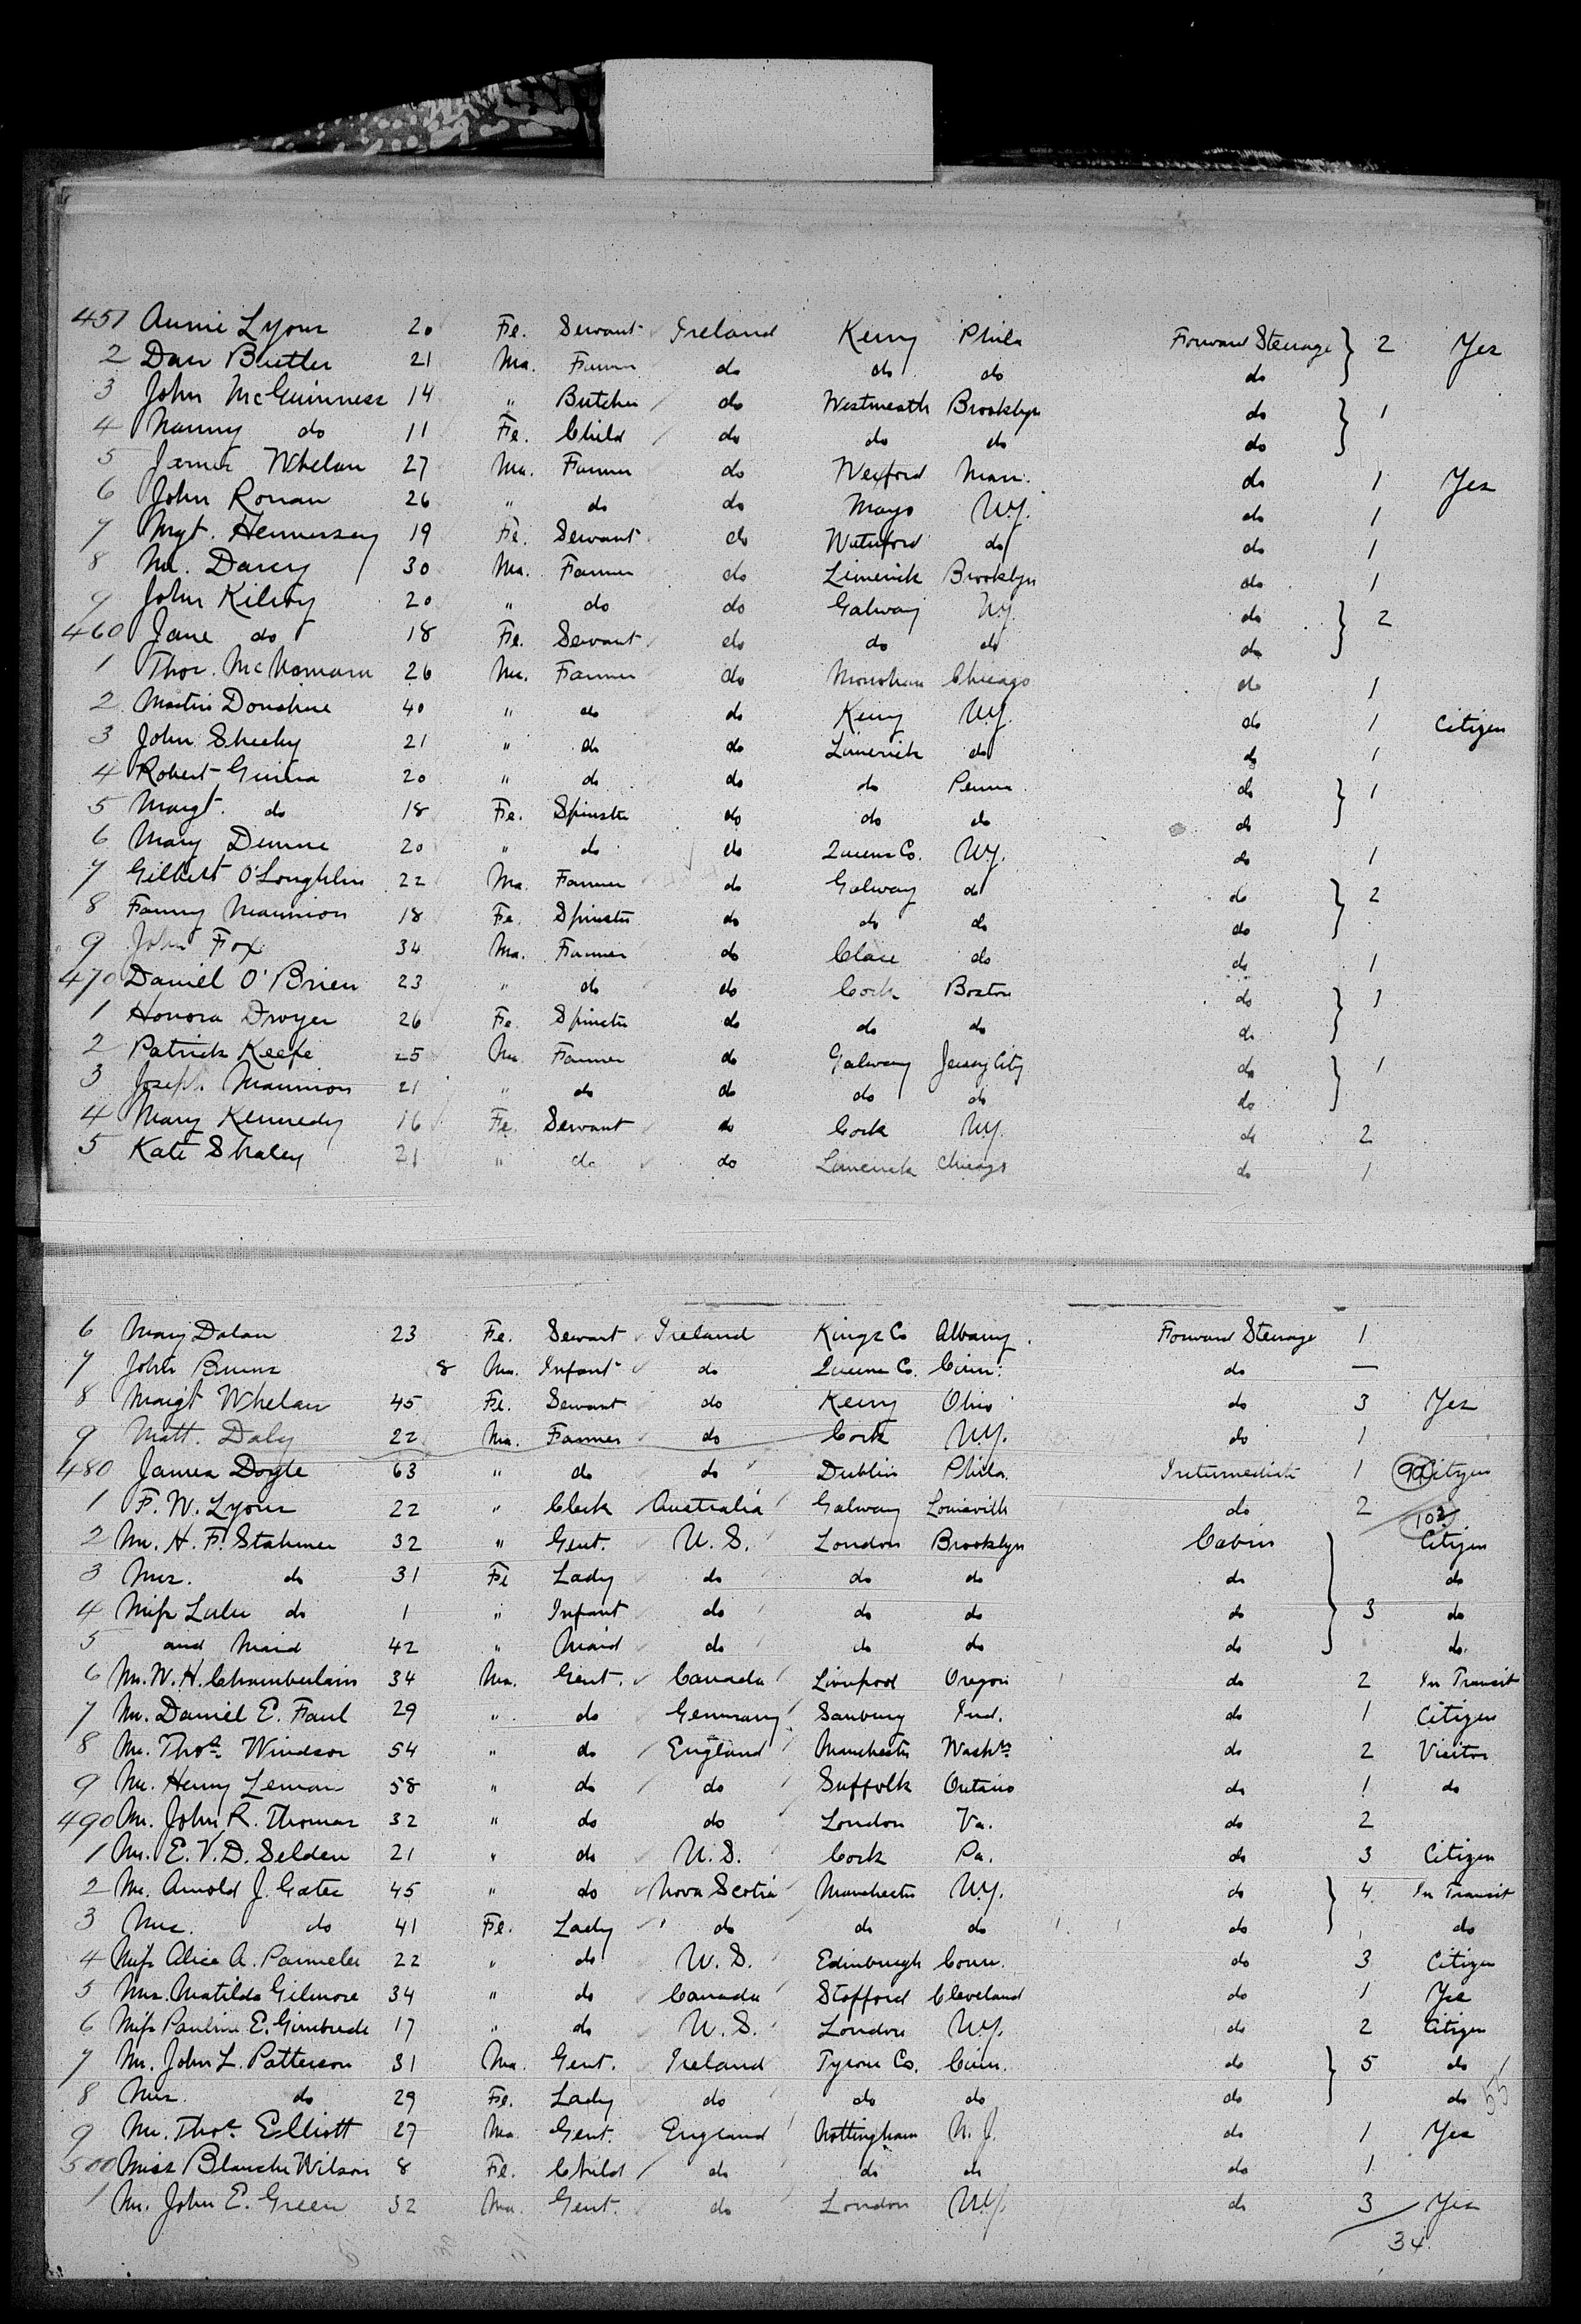 451 Annie Lyons 20 Fe. Servant Ireland Kerry Phila Forward Steerage } 2 Yes
2 Dan Butler 21 Ma. Farmer do do do do
3 John McGuinness 14 " Butcher do Westmeath Brooklyn do } 1
4 Nanny do 11 Fe. Child do do do do
5 James Whelan 27 Ma. Farmer do Wexford Mass. do 1 Yes
6 John Ronan 26 " do do Mayo N.Y. do 1
7 Mgt. Hennessey 19 Fe. Servant do Waterford do do 1
8 M. Darcy 30 Ma. Farmer do Limerick Brooklyn do 1
9 John Kilroy 20 " do do Galway N.Y. do } 2
460 Jane do 18 Fe. Servant do do do do
1 Thos. McNamara 26 Ma. Farmer do Monohan Chicago do 1
2 Martin Donohue 40 " do do Kerry N.Y. do 1 Citizen
3 John Sheehy 21 " do do Limerick do do 1
4 Robert 20 " do do do Penna do } 1
5 Margt. do 18 Fe. Spinster do do do do
6 Mary Dunne 20 " do do Queens Co. N.Y. do 1
7 Gilbert O'Loughlin 22 Ma. Farmer do Galway do do } 2
8 Fanny Mannion 18 Fe. Spinster do do do do
9 John Fox 34 Ma. Farmer do Clare do do 1
470 Daniel O'Brien 23 " do do Cork Boston do } 1
1 Honora Dwyer 26 Fe. Spinster do do do do
2 Patrick Keefe 25 Ma Farmer do Galway Jersey City do } 1
3 Joseph Mannion 21 " do do do do do
4 Mary Kennedy 16 Fe. Servant do Cork N.Y. do 2
5 Kate 21 " do do Limerick Chicago do 1
6 Mary Dolan 23 Fe. Servant Ireland Kings Co Albany. Forward Steerage 1
7 John Burns 8 Ma. Infant do Queens Co. Cinn: do —
8 Margt Whelan 45 Fe. Servant do Kerry Ohio do 3 Yes
9 Matt. Daly 22 Ma. Farmer do Cork N.Y. do 1
480 James Doyle 63 " do do Dublin Phila. Intermediate 1 Citizen
1 F. W. Lyons 22 " Clerk Australia Galway Louisville do 2 102
2 Mr. H. F. Stahmer 32 " Gent. U. S. London Brooklyn Cabin } Citizen
3 Mrs. do 31 Fe Lady do do do do do
4 Miss Lulu do 1 " Infant do do do do 3 do
5 and Maid 42 " Maid do do do do do.
6 Mr. W. H. Chamberlain 34 Ma. Gent. Canada Liverpool Oregon do 2 In Transit
7 Mr. Daniel E. Faul 29 " do Germany Ind. do 1 Citizen
8 Mr. Thos. Windsor 54 " do England Manchester Washtn do 2 Visitor
9 Mr. Henry Leman 58 " do do Suffolk Ontario do 1 do
490 Mr. John R. Thomas 32 " do do London Va. do 2
1 Mr. E. V. D. Selden 21 " do U. S. Cork Pa. do 3 Citizen
2 Mr. Arnold J. Gates 45 " do Nova Scotia Manchester N.Y. do } 4 In Transit
3 Mrs. do 41 Fe. Lady do do do do do
4 Miss Alice A. Parmelee 22 " do U. S. Edinburgh Conn. do 3 Citizen
5 Mrs. Matilda Gilmore 34 " do Canada Stafford Cleveland do 1 Yes
6 Miss Pauline E. Gimbrede 17 " do U. S. London N.Y. do 2 Citizen
7 Mr. John L. Patterson 31 Ma. Gent. Ireland Tyrone Co. Cinn. do } 5 do
8 Mrs. do 29 Fe. Lady do do do do do 55
9 Mr. Thos. Elliott 27 Ma Gent. England Nottingham N. J. do 1 Yes
500 Miss Blanche Wilson 8 Fe. Child do do do do 1
1 Mr. John E. Green 32 Ma. Gent. do London N.Y. do 3 Yes
34